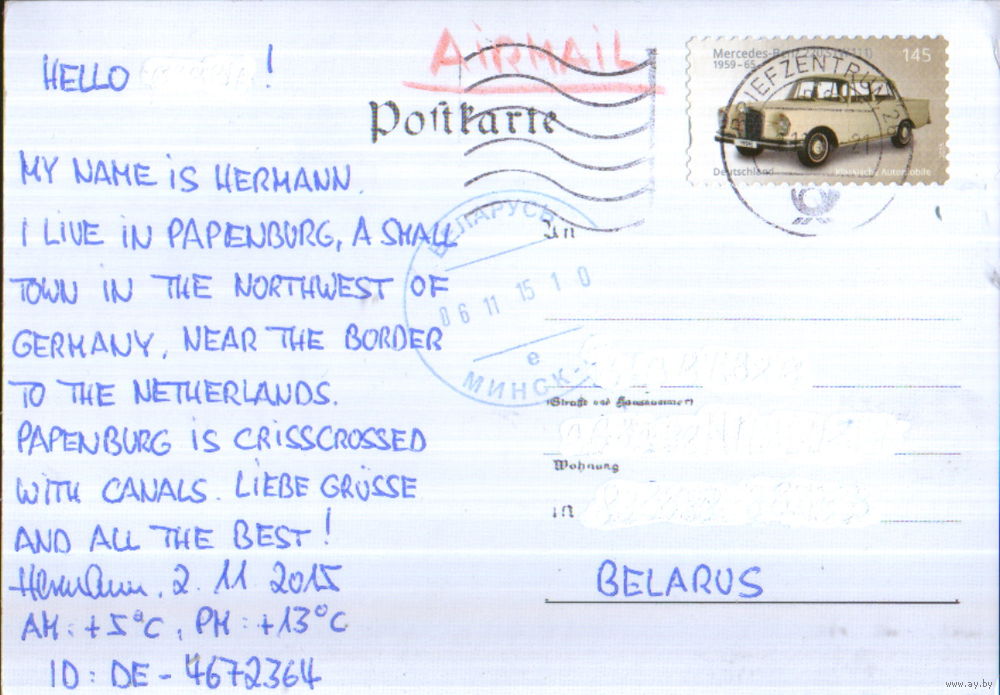 HELLO !
MY NAME IS HERMANN.
I LIVE IN PAPENBURG, A SMALL
TOWN IN THE NORTHWEST OF
GERMANY, NEAR THE BORDER
TO THE NETHERLANDS.
PAPENBURG IS CRISSCROSSED
WITH CANALS. LIEBE GRÜSSE
AND ALL THE BEST!
Hermann, 2 11 2015
AM: +5°C, PM: +13°C
ID: DE-4672364
AIRMAIL
Postkarte
Mercedes-Benz 220S (W111)
1959-65
145
Deutschland Klassische Automobile
BRIEFZENTRUM
БЕЛАРУСЬ
06 11 15 1 0
е
МИНСК
An
(Straße und Hausnummer)
Wohnung
in
BELARUS
www.ay.by